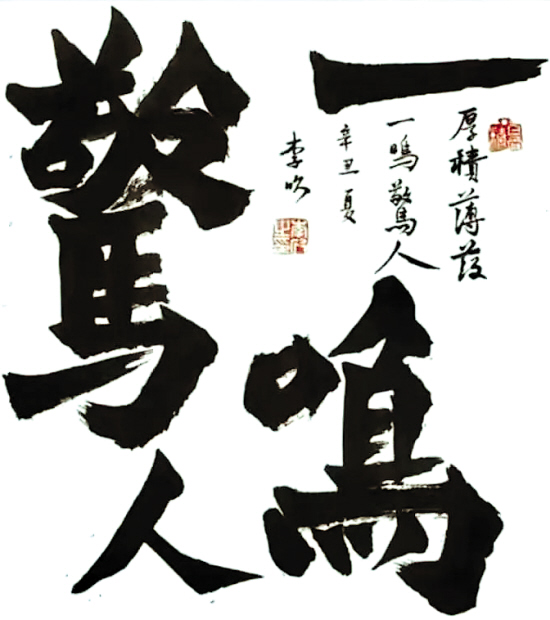 一鳴
驚人
厚積薄發
一鳴驚人
辛丑夏
李